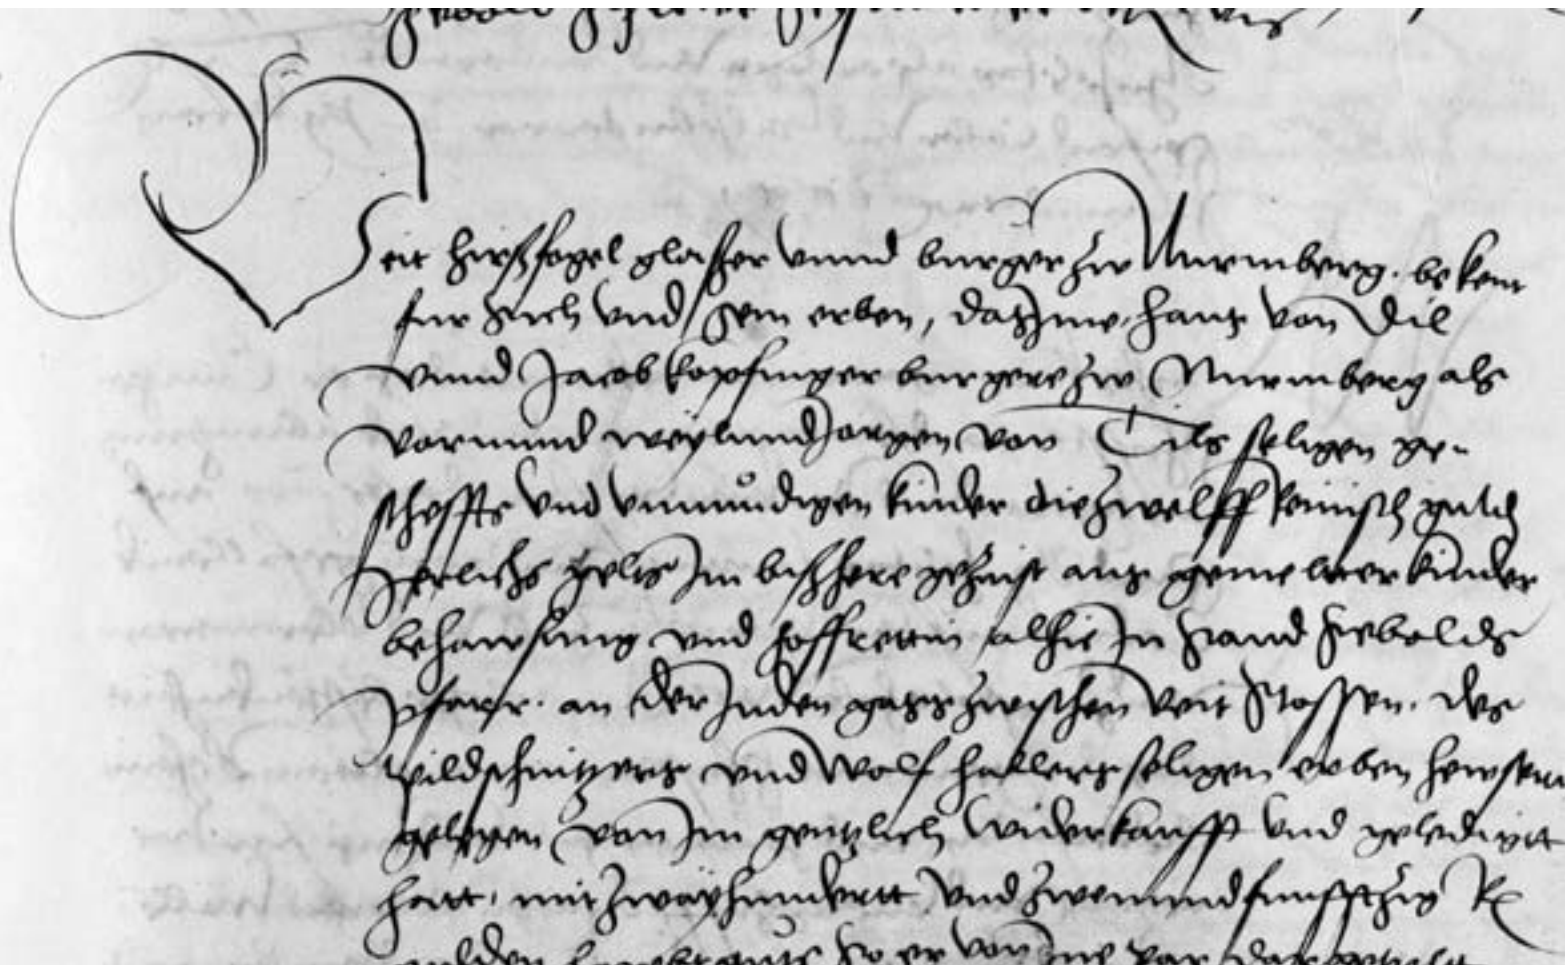 Veit Hirsfogel glasser unnd burger zw Nurmberg bekent
fur sich und sein erben, das ime Hans von Dil
unnd Jacob Kopfinger burgere zw Nurmberg als
vormund weylund Jorgen von Tils seligen ge-
scheffts und unmündigen kinder die zwelff Reinisch guld
jerlichs gelts im bißhere gezinst aus gemelter kinder
behawsung und hoffrettin alhie in Sand Sebolds
pfarr an der Juden gass zwischen Veit Stossen des
pildschnitzers und Wolf Hallers seligen erben hewsern
gelegen von im gentzlich widerkaufft und geledigtt
hatt, mit zwayhundertt und zwenundfunfftzig R